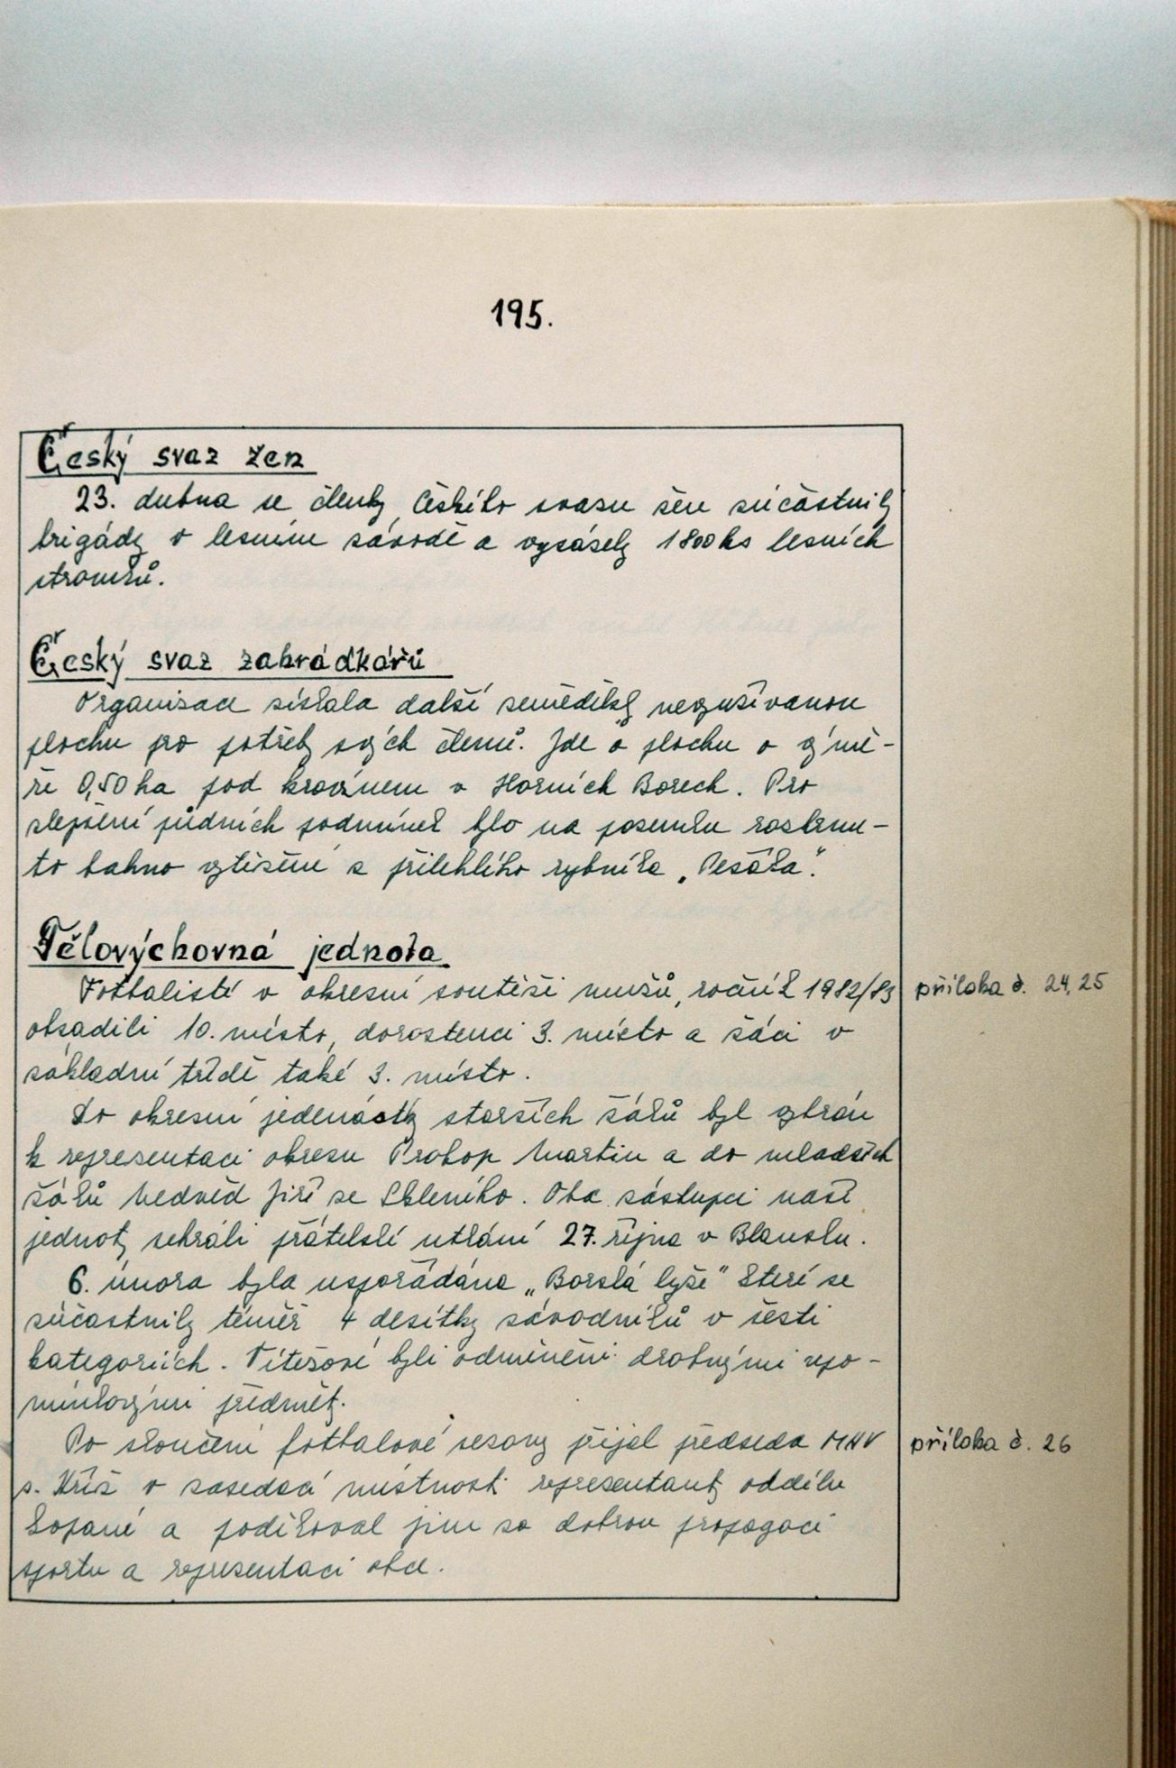 195.
Český svaz žen
23. dubna se členky Českého svazu žen zúčastnily
brigády v lesním závodě a vysázely 1800 ks lesních
stromků.
Český svaz zahrádkářů
Organizace získala další zemědělsky nevyužívanou
plochu pro potřeby svých členů. Jde o plochu o výmě-
ře 0,50 ha pod kravínem v Horních Borech. Pro
zlepšení půdních podmínek bylo na pozemku rozhrnu-
to bahno vytěžené z přilehlého rybníka „Pesáka".
Tělovýchovná jednota
Fotbalisté v okresní soutěži mužů, ročník 1982/83
příloha č. 24, 25
obsadili 10. místo, dorostenci 3. místo a žáci v
základní třídě také 3. místo.
Do okresní jedenáctky starších žáků byl vybrán
k representaci okresu Prokop Martin a do mladších
žáků Medvěd Jiří ze Skleného. Oba zástupci naší
jednoty sehráli přátelské utkání 27. října v Blansku.
6. února byla uspořádána „Borská lyže" které se
zúčastnily téměř 4 desítky závodníků v šesti
kategoriích. Vítězové byli odměněni drobnými upo-
mínkovými předměty.
Po skončení fotbalové sezony přijal předseda MNV
příloha č. 26
s. Kříž v zasedací místnosti representanty oddílu
kopané a poděkoval jim za dobrou propagaci
sportu a representaci obce.